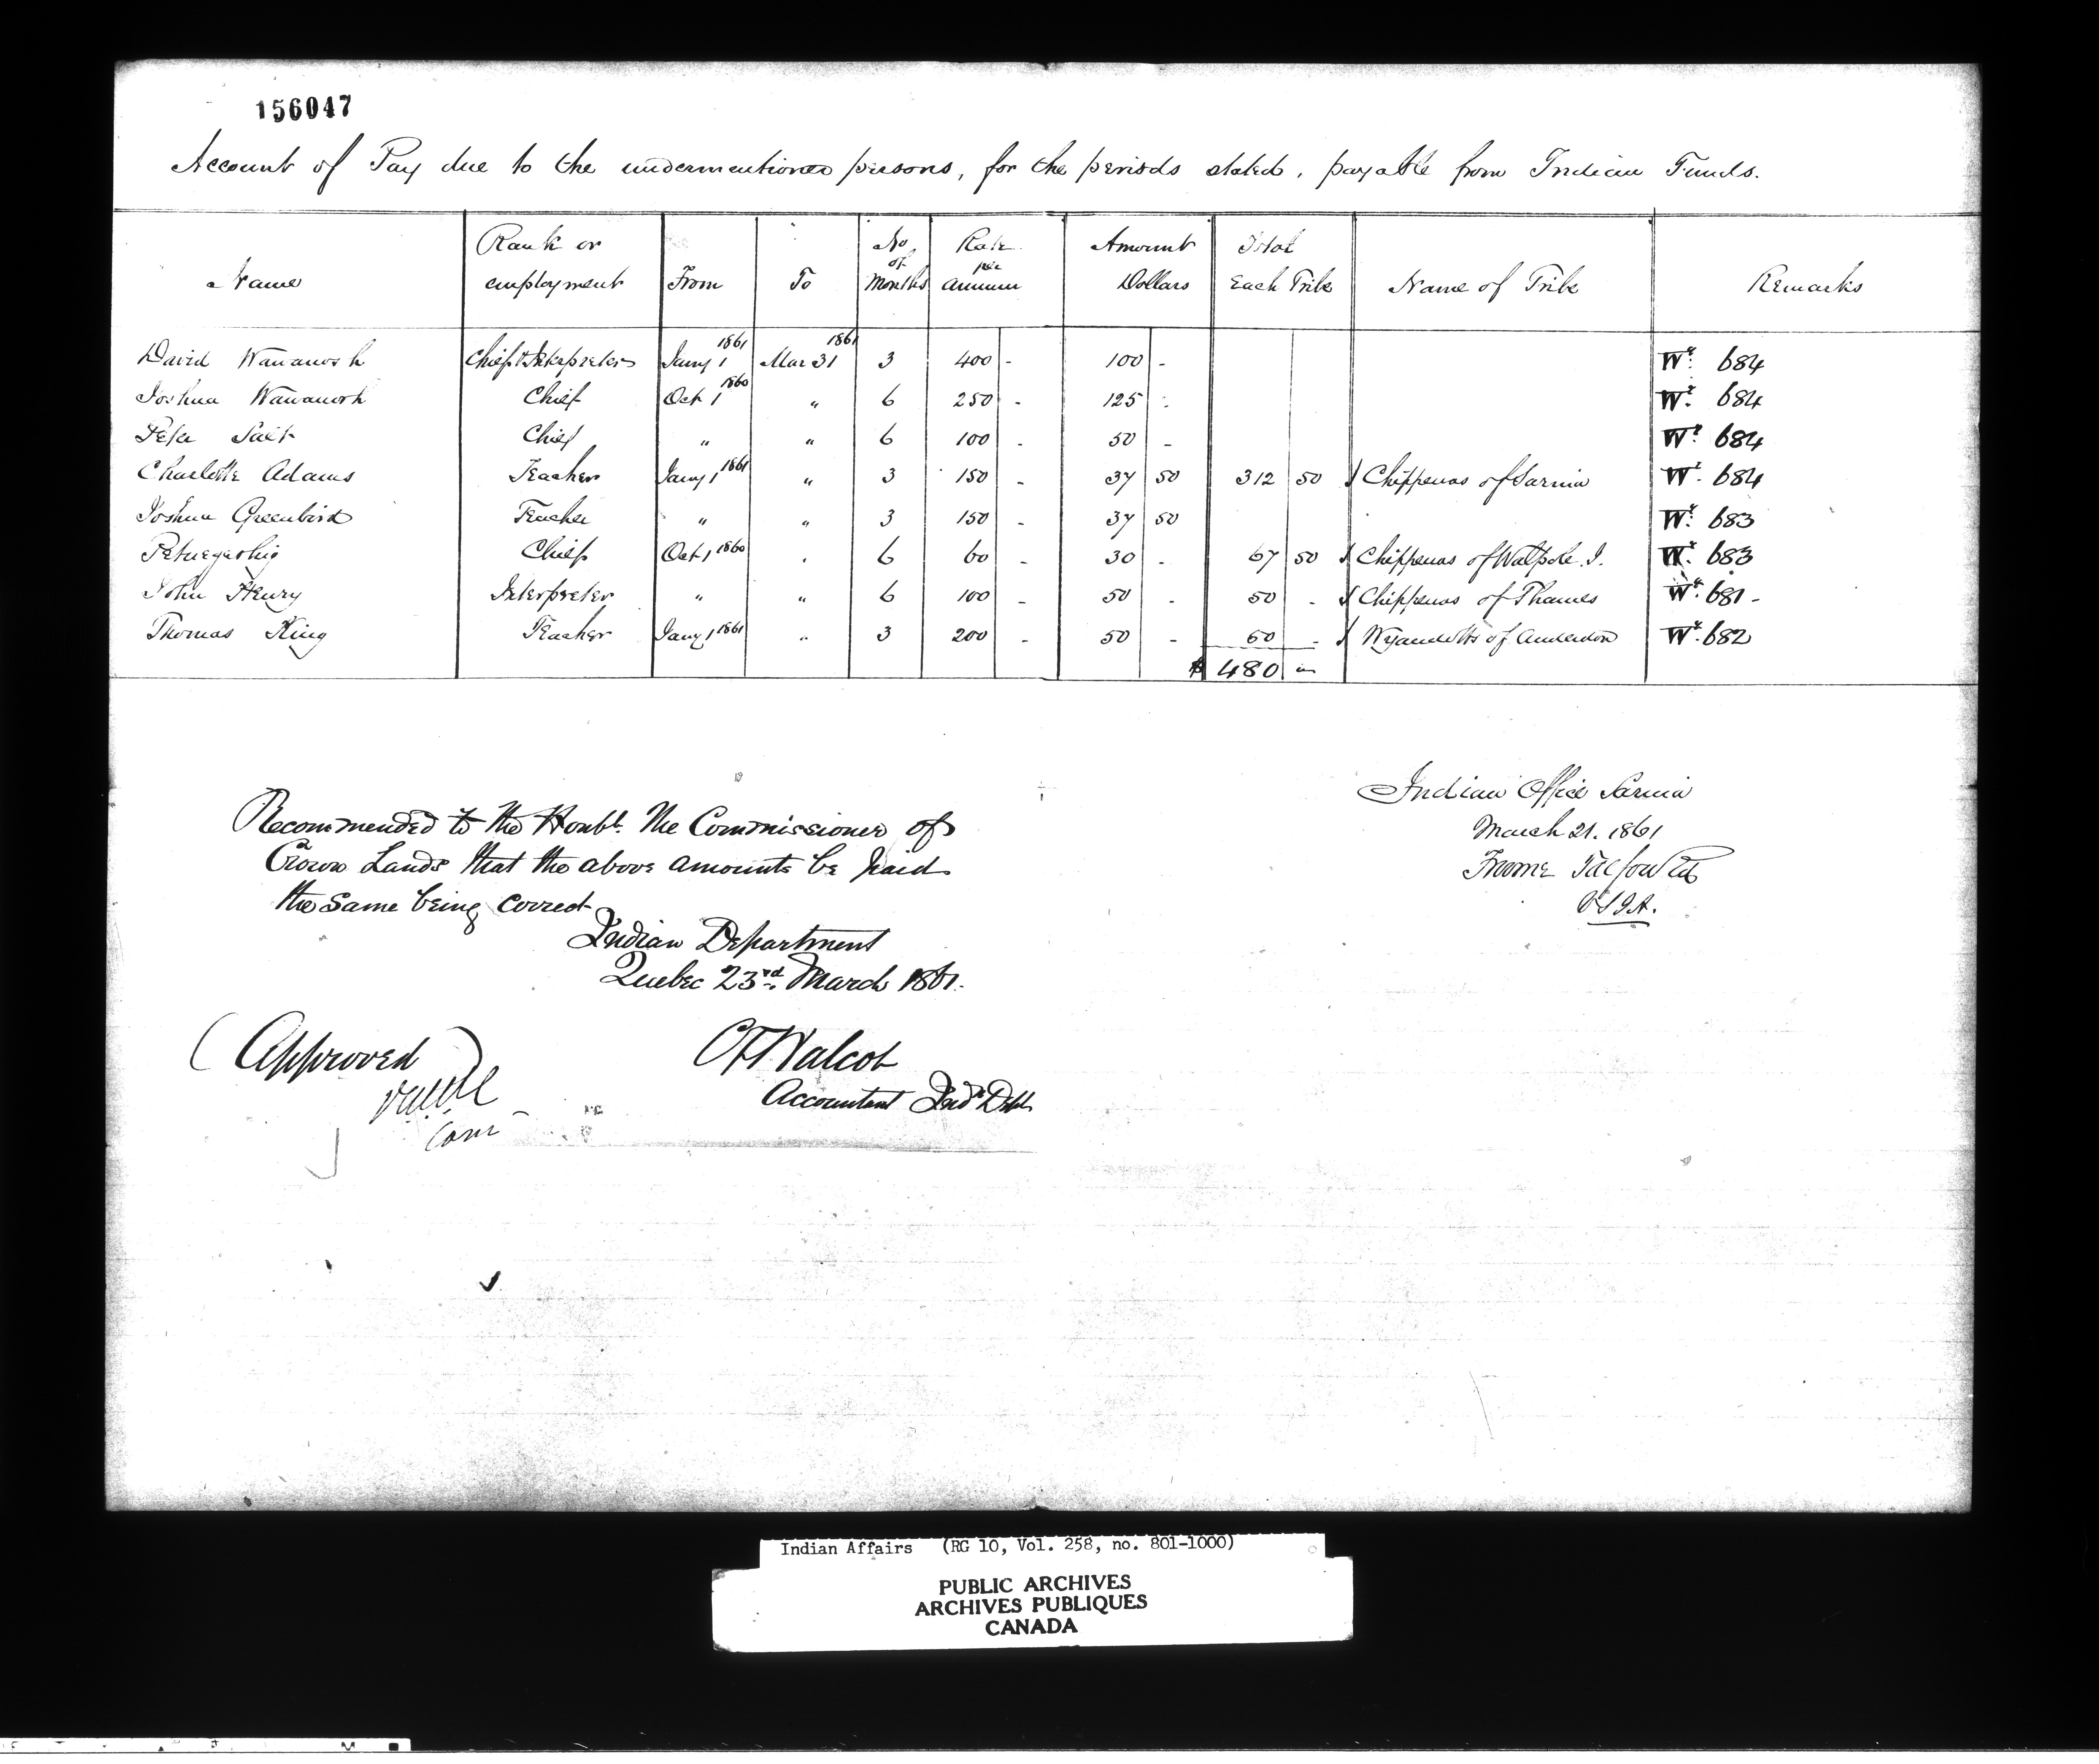 156047
Account of Pay due to the undermentioned persons, for the periods stated, payable from Indian Funds.
Name | Rank or employment | From | To | No of Months | Rate per annum | Amount Dollars | Total Each Tribe | Name of Tribe | Remarks
David Wawanosh | Chief & Interpreter | Jany 1 1861 | Mar 31 1861 | 3 | 400 - | 100 - | | | Wt. 684
Joshua Wawanosh | Chief | Oct 1 1860 | " | 6 | 250 - | 125 - | | | Wt. 684
Peter Salt | Chief | " | " | 6 | 100 - | 50 - | | | Wt. 684
Charlotte Adams | Teacher | Jany 1 1861 | " | 3 | 150 - | 37 50 | 312 50 | Chippewas of Sarnia | Wt. 684
Joshua Greenbird | Teacher | " | " | 3 | 150 - | 37 50 | | | Wt. 683
Chief | Oct 1 1860 | " | 6 | 60 - | 30 - | 67 50 | Chippewas of Walpole I. | Wt. 683
John Henry | Interpreter | " | " | 6 | 100 - | 50 - | 50 - | Chippewas of Thames | Wt. 681 -
Thomas King | Teacher | Jany 1 1861 | " | 3 | 200 - | 50 - | 50 - | Wyandotts of Anderdon | Wt. 682
$ 480 -
Indian Office Sarnia
March 21. 1861
Froome Talfourd
VSIA.
Recommended to the Honble. The Commissioner of
Crown Lands that the above amounts be paid
the same being correct
Indian Department
Quebec 23rd. March 1861.
(Approved)
Com
CT Walcot
Accountant Indn Dept
Indian Affairs (RG 10, Vol. 258, no. 801-1000)
PUBLIC ARCHIVES
ARCHIVES PUBLIQUES
CANADA